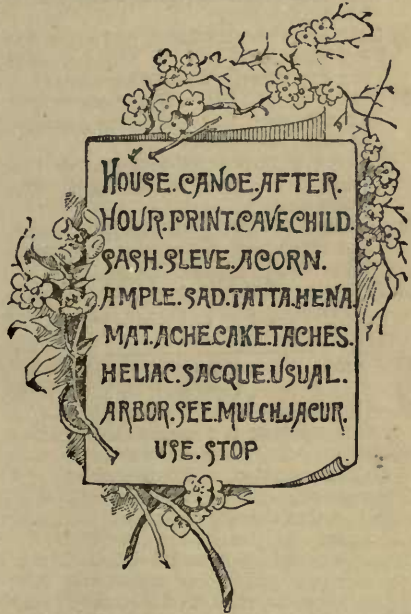 HOUSE.CANOE.AFTER.
HOUR.PRINT.CAVE.CHILD.
SASH.SLEVE.ACORN.
AMPLE.SAD.TATTA.HENA.
MAT.ACHE.CAKE.TACHES.
HELIAC.SACQUE.USUAL.
ARBOR.SEE.MULCH.JACUR.
USE.STOP